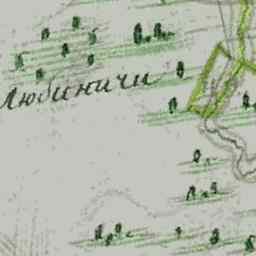 Любиничи